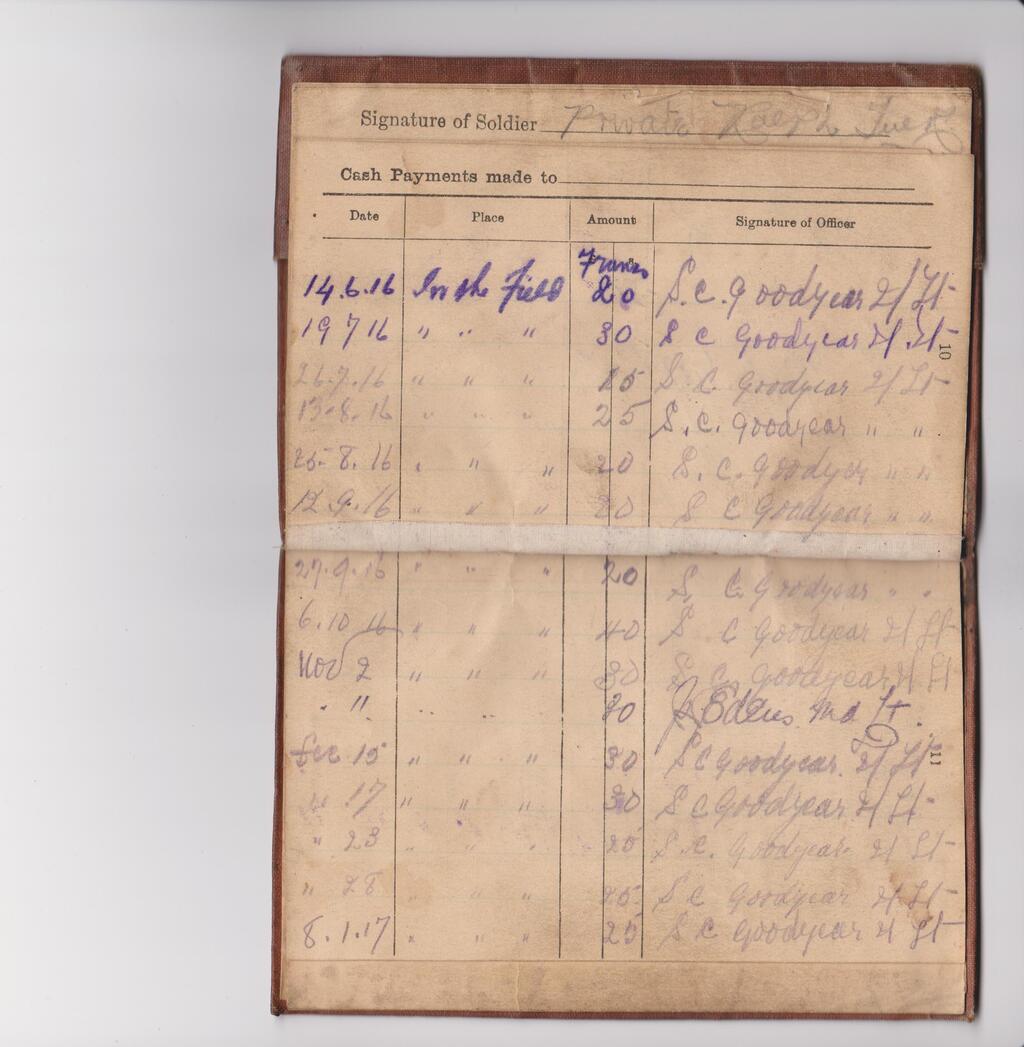 Signature of Soldier Private Ralph
Cash Payments made to
Date Place Amount Signature of Officer
Francs
14.6.16 In the Field 20 S.C. Goodyear 2/Lt
19 7 16 " " " 30 S C Goodyear 2/Lt
10
26.7.16 " " " 15 S. C. Goodyear 2/Lt
13.8.16 " " " 25 S.C. Goodyear " "
25.8.16 " " " 20 S.C. Goodyer " "
12.9.16 " " " 20 S C Goodyear " "
27.9.16 " " " 20 S. C. Goodyear " "
6.10 16 " " " 40 S C Goodyear 2/Lt
Nov 2 " " " 30 S C. Goodyear 2/Lt
" " " " 20 Lt.
11
Dec 15 " " " 30 S C Goodyear. 2/Lt
17 " " " 30 S C Goodyear 2/Lt
" 23 " " " 20 S.C. Goodyear. 2/Lt
" 28 " " " 25 S C Goodyear 2/Lt
8.1.17 " " " 25 S C Goodyear 2/Lt